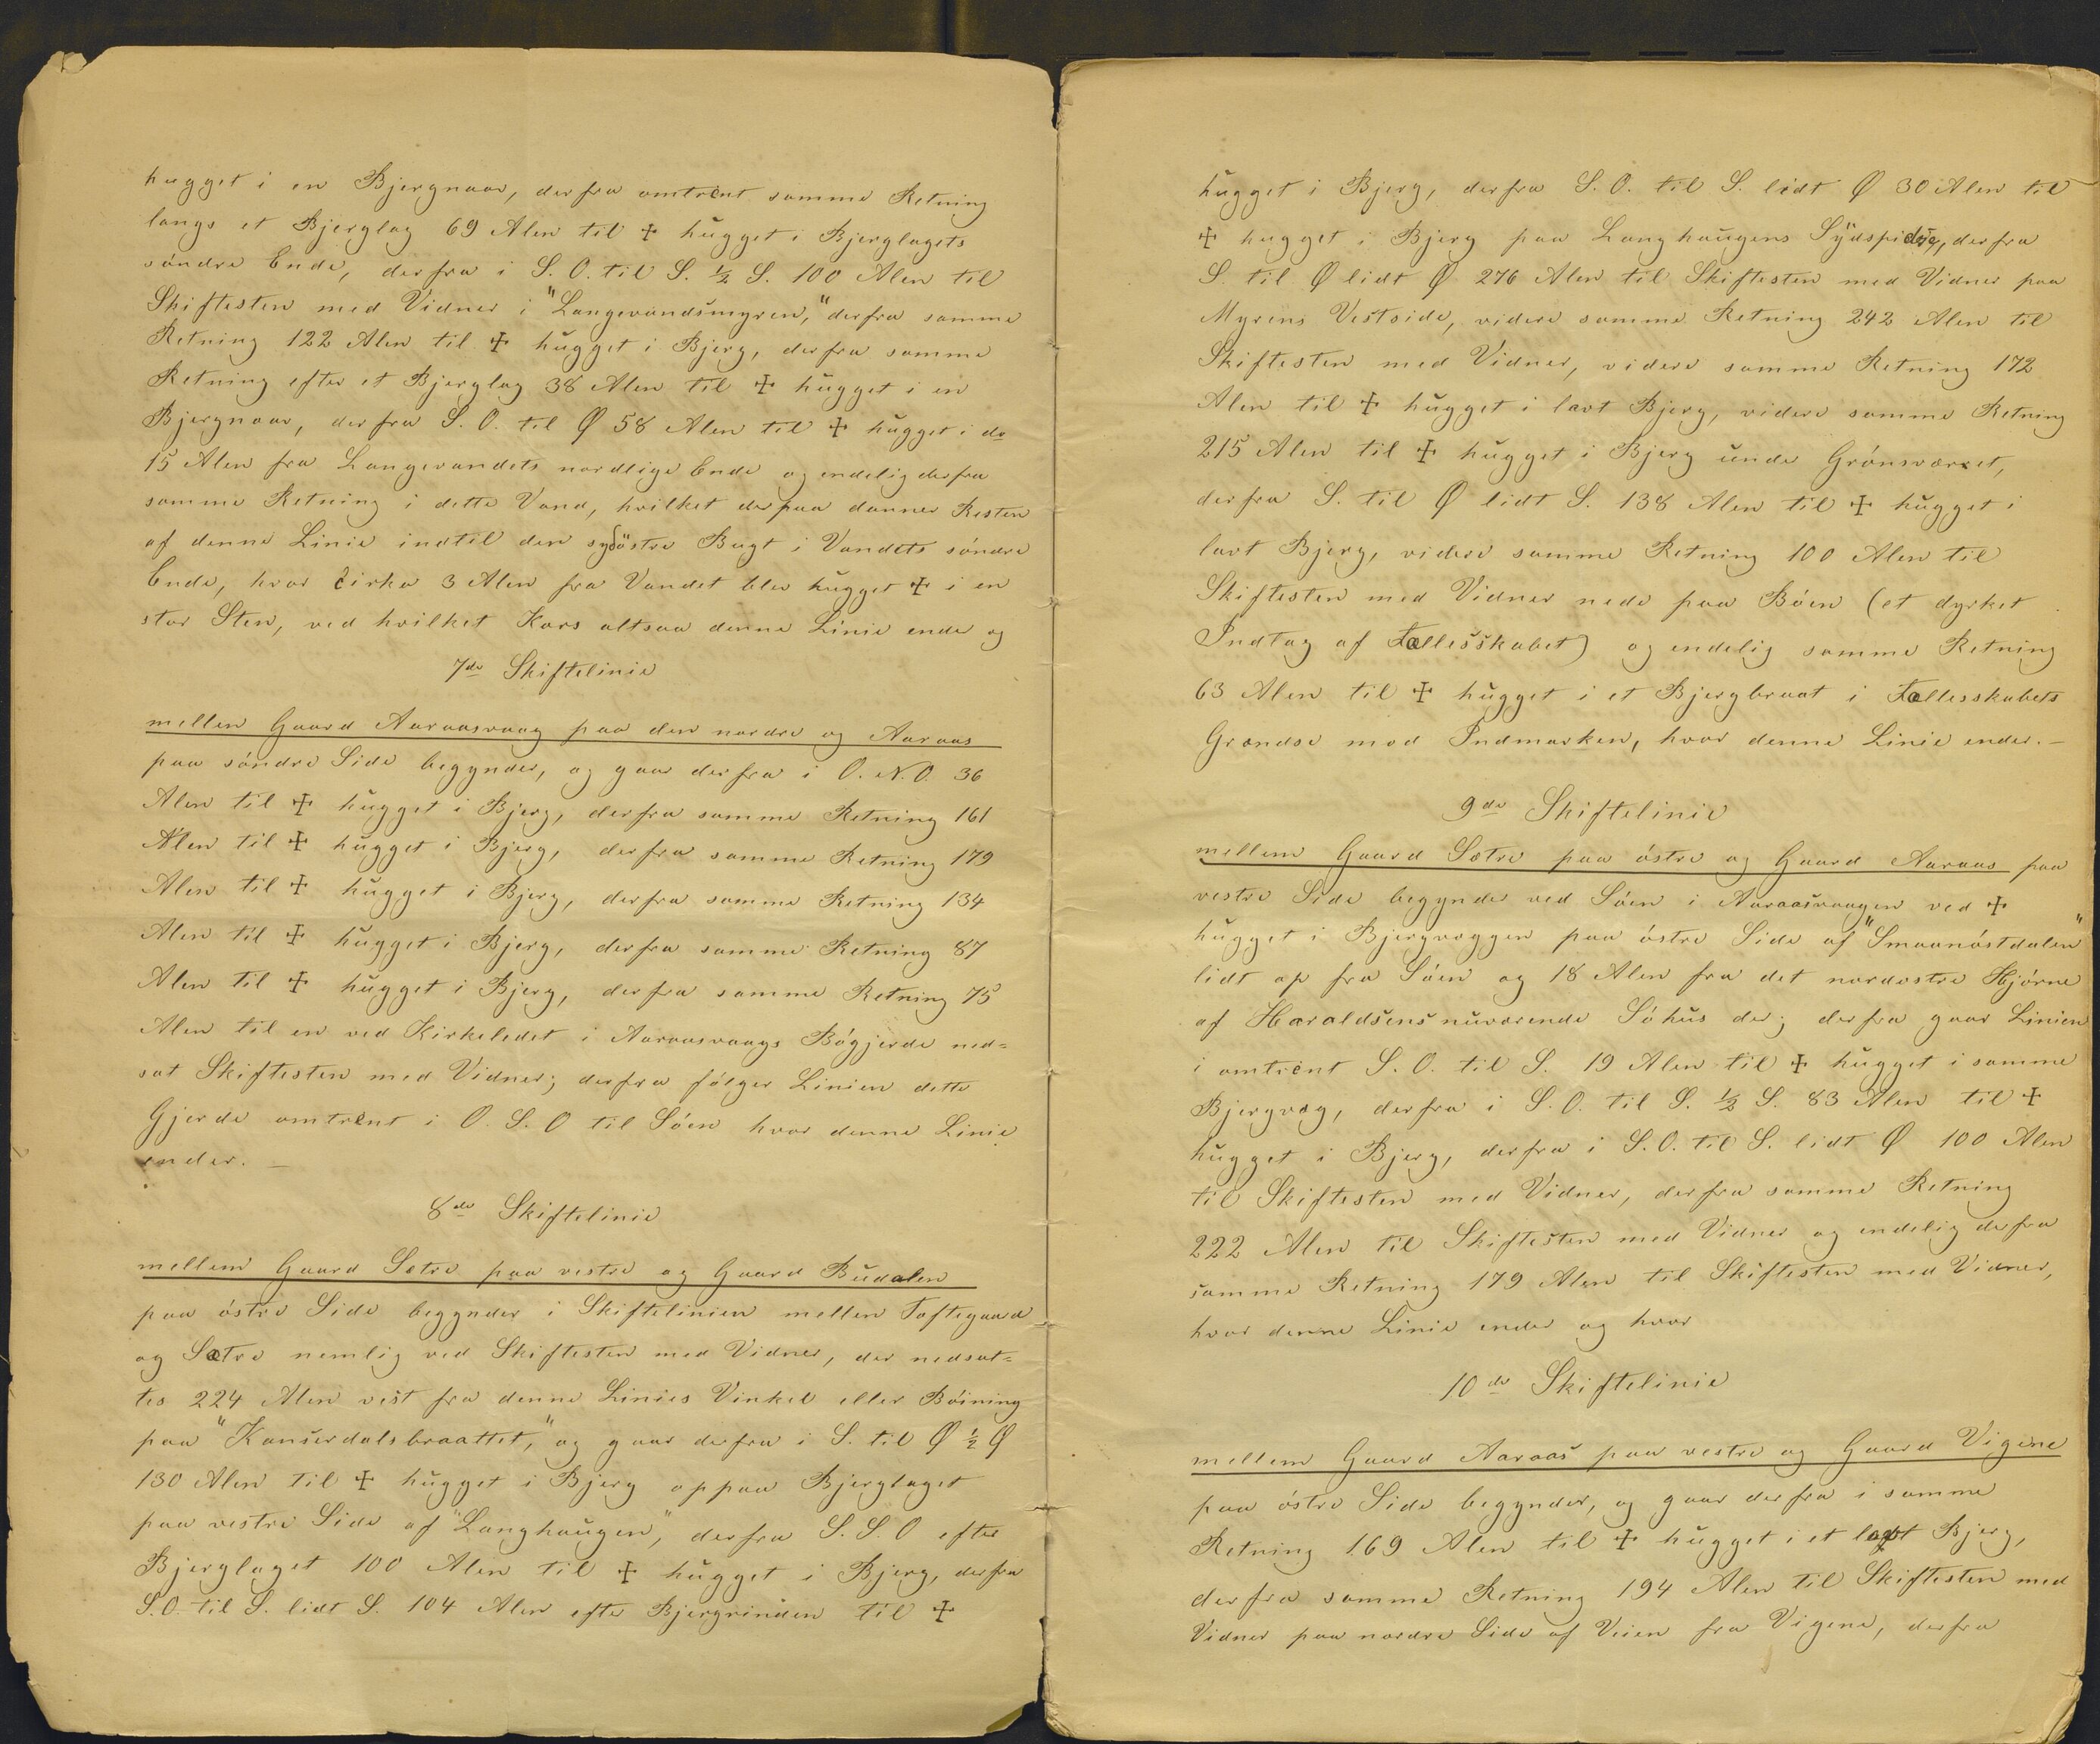 hugget i en Bjergnaar, derfra omtrent samme Retning
langs et Bjerglag 69 Alen til ☩ hugget i Bjerglagets
söndre Ende, derfra i S. O. til S. ½ S. 100 Alen til
Skiftesten med Vidner i "Langevandsmyren," derfra samme
Retning 122 Alen til ☩ hugget i Bjerg, derfra samme
Retning efter et Bjerglag 38 Alen til ☩ hugget i en
Bjergnaar, derfra S. O. til Ø 58 Alen til ☩ hugget i do
15 Alen fra Langevandets nordlige Ende og endelig derfra
samme Retning i dette Vand, hvilket derpaa danner Resten
af denne Linie indtil den sydöstre Bugt i Vandets söndre
Ende, hvor cirka 3 Alen fra Vandet blev hugget ☩ i en
stor Sten, ved hvilket Kors altsaa denne Linie ender og
7de Skiftelinie
mellem Gaard Aaraasvaag paa den nordre og Aaraas
paa söndre Side begynder, og gaar derfra i O. N. O. 36
Alen til ☩ hugget i Bjerg, derfra samme Retning 161
Alen til ☩ hugget i Bjerg, derfra samme Retning 179
Alen til ☩ hugget i Bjerg, derfra samme Retning 134
Alen til ☩ hugget i Bjerg, derfra samme Retning 87
Alen til ☩ hugget i Bjerg, derfra samme Retning 75
Alen til en ved Kirkeledet i Aaraasvaags Bögjerde ned=
sat Skiftesten med Vidner; derfra fölger Linien dette
Gjerde omtrent i O. S. O til Söen hvor denne Linie
ender. —
8de Skiftelinie
mellem Gaard Sætre paa vestre og Gaard Budalen
paa östre Side begynder i Skiftelinien mellem Toftegaard
og Sætre nemlig ved Skiftesten med Vidner, der nedsat=
tes 224 Alen vest fra denne Linies Vinkel eller Böining
paa "Kanserdalsbraattet," og gaar derfra i S. til Ø ½ Ø
130 Alen til ☩ hugget i Bjerg oppaa Bjerglaget
paa vestre Side af "Langhaugen," derfra S. S. O efter
Bjerglaget 100 Alen til ☩ hugget i Bjerg, derfra
S. O. til S. lidt S. 104 Alen efter Bjergrinden til ☩
hugget i Bjerg, derfra S. O. til S. lidt Ø 30 Alen til
☩ hugget i Bjerg paa Langhaugens Sydspidse, derfra
S. til Ø lidt Ø 276 Alen til Skiftesten med Vidner paa
Myrens Vestside, videre samme Retning 242 Alen til
Skiftesten med Vidner, videre samme Retning 172
Alen til ☩ hugget i lavt Bjerg, videre samme Retning
215 Alen til ☩ hugget i Bjerg under Grönsværet,
derfra S. til Ø lidt S. 138 Alen til ☩ hugget i
lavt Bjerg, videre samme Retning 100 Alen til
Skiftesten med Vidner nede paa Böen (et dyrket
Indtag af Fællesskabet) og endelig samme Retning
63 Alen til ☩ hugget i et Bjergbraat i Fællesskabets
Grændse mod Indmarken, hvor denne Linie ender. —
9de Skiftelinie
mellem Gaard Sætre paa östre og Gaard Aaraas paa
vestre Side begynder ved Söen i Aaraasvaagen ved ☩
hugget i Bjergvæggen paa östre Side af "Smaanöstdalen"
lidt op fra Söen og 18 Alen fra det nordostre Hjörne
af Haraldsens nuværende Söhus der; derfra gaar Linien
i omtrent S. O. til S. 19 Alen til ☩ hugget i samme
Bjergvæg, derfra i S. O. til S. ½ S. 83 Alen til ☩
hugget i Bjerg, derfra i S. O. til S. lidt Ø 100 Alen
til Skiftesten med Vidner, derfra samme Retning
222 Alen til Skiftesten med Vidner og endelig derfra
samme Retning 179 Alen til Skiftesten med Vidner,
hvor denne Linie ender og hvor
10de Skiftelinie
mellem Gaard Aaraas paa vestre og Gaard Vigene
paa östre Side begynder, og gaar derfra i samme
Retning 169 Alen til ☩ hugget i et lavt Bjerg,
derfra samme Retning 194 Alen til Skiftesten med
Vidner paa nordre Side af Veien fra Vigene, derfra